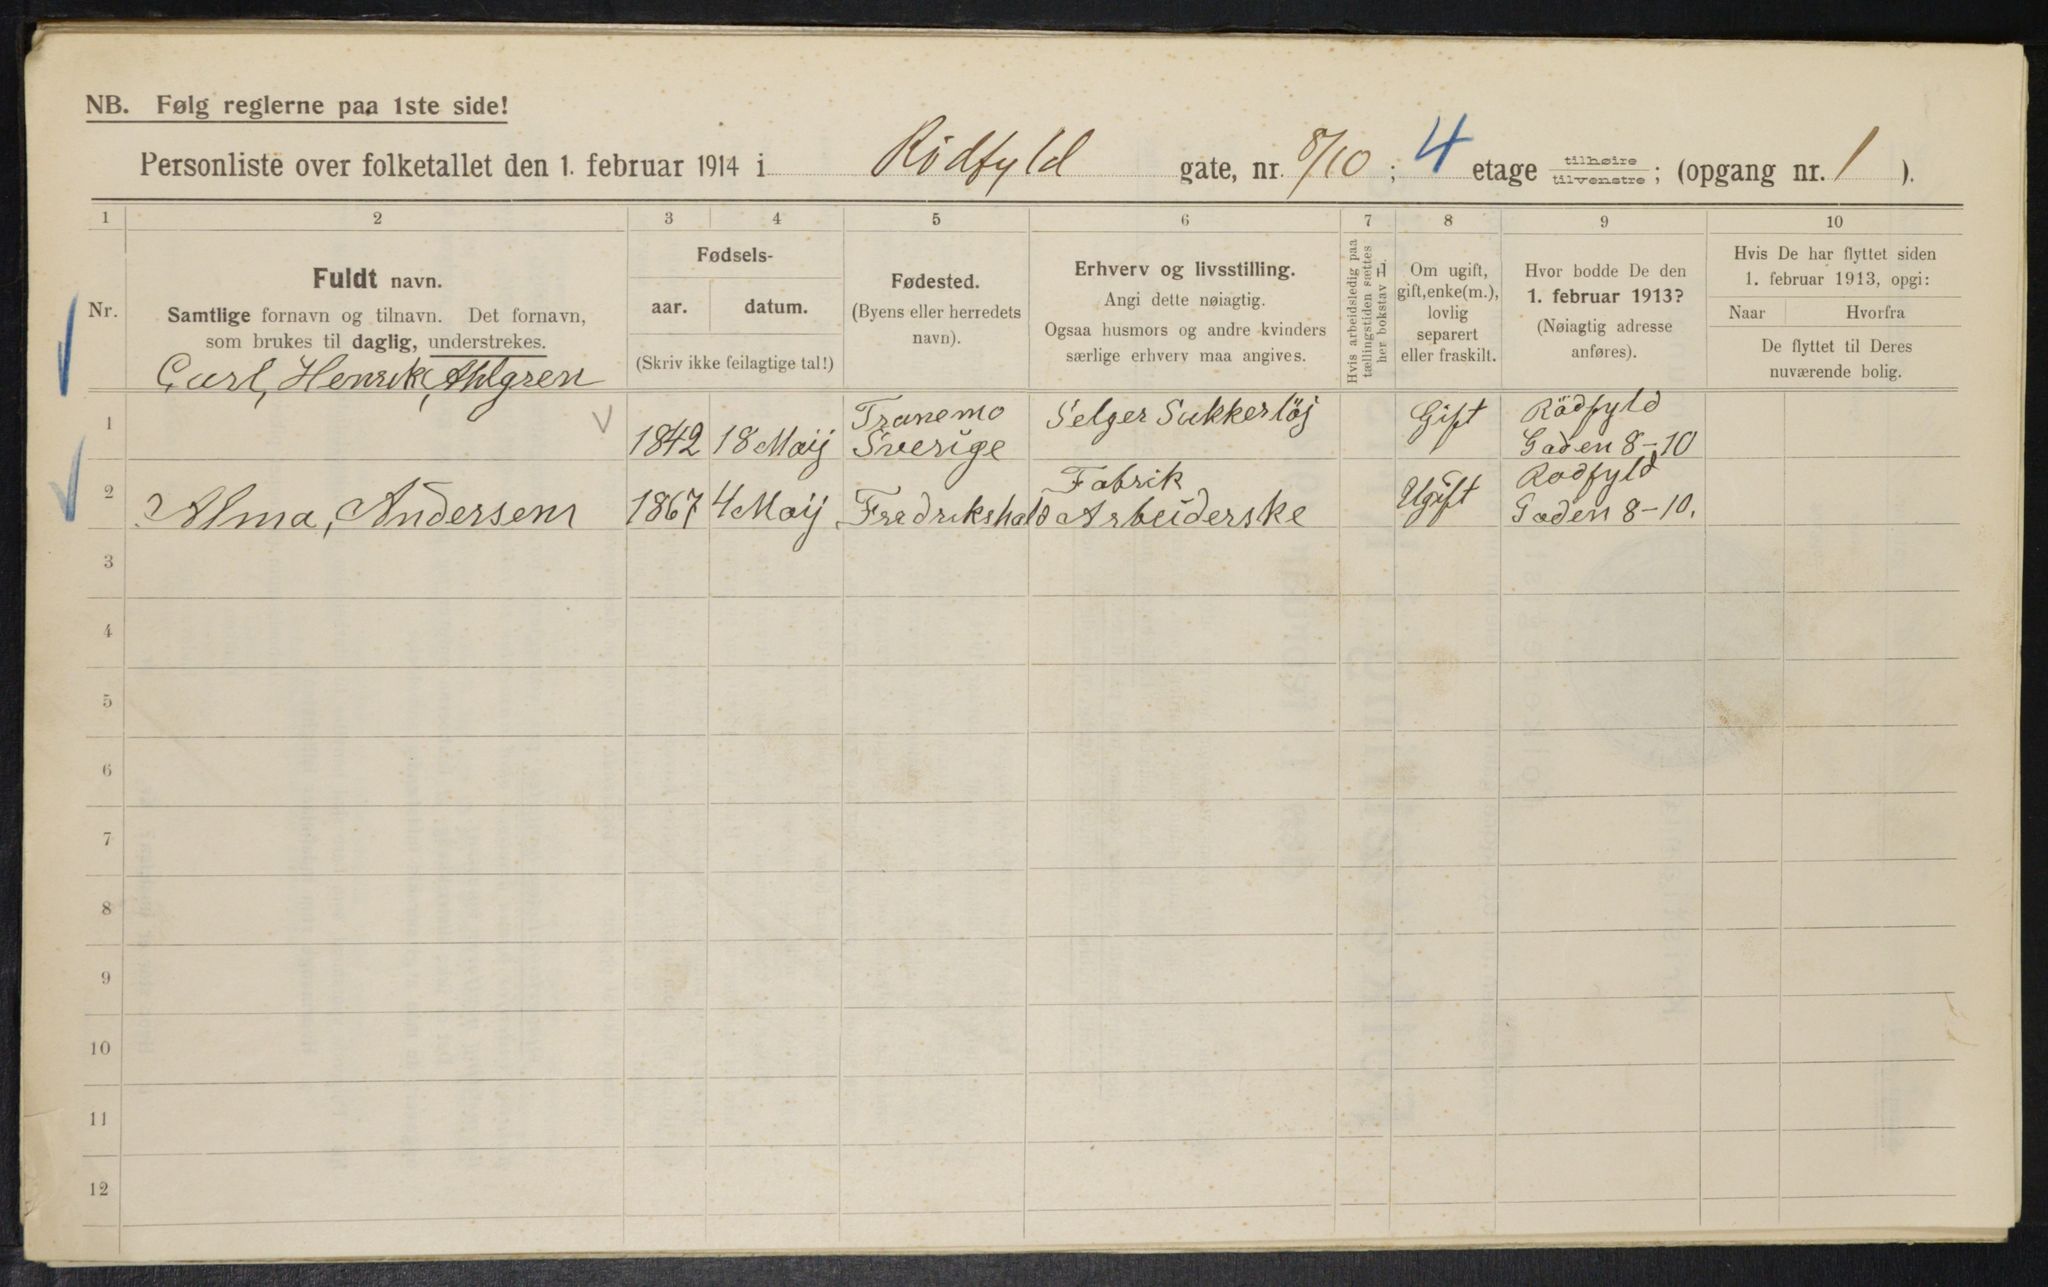 NB. Følg reglerne paa 1ste side!
Personliste over folketallet den 1. februar 1914 i Rødfyld gate, nr. 8/10; 4 etage tilhøire tilvenstre; (opgang nr. 1 ).
1 2 3 4 5 6 7 8 9 10
Nr.
Fuldt navn.
Samtlige fornavn og tilnavn. Det fornavn,
som brukes til daglig, understrekes.
Fødsels-
aar. datum.
(Skriv ikke feilagtige tal!)
Fødested.
(Byens eller herredets
navn).
Erhverv og livsstilling.
Angi dette nøiagtig.
Ogsaa husmors og andre kvinders
særlige erhverv maa angives.
Hvis arbeidsledig paa
tællingstiden sættes
her bokstav L.
Om ugift,
gift, enke(m.),
lovlig
separert
eller fraskilt.
Hvor bodde De den
1. februar 1913?
(Nøiagtig adresse
anføres).
Hvis De har flyttet siden
1. februar 1913, opgi:
Naar Hvorfra
De flyttet til Deres
nuværende bolig.
Carl, Henrik, Ahlgren
1 1842 18 Maij Tranemo Sverige Selger Sukkertöj Gift Rödfyld Gaden 8-10
2 Alma, Andersen 1867 4 Maij Fredrikshald Fabrik Arbeiderske Ugift Rodfyld Gaden 8-10.
3
4
5
6
7
8
9
10
11
12